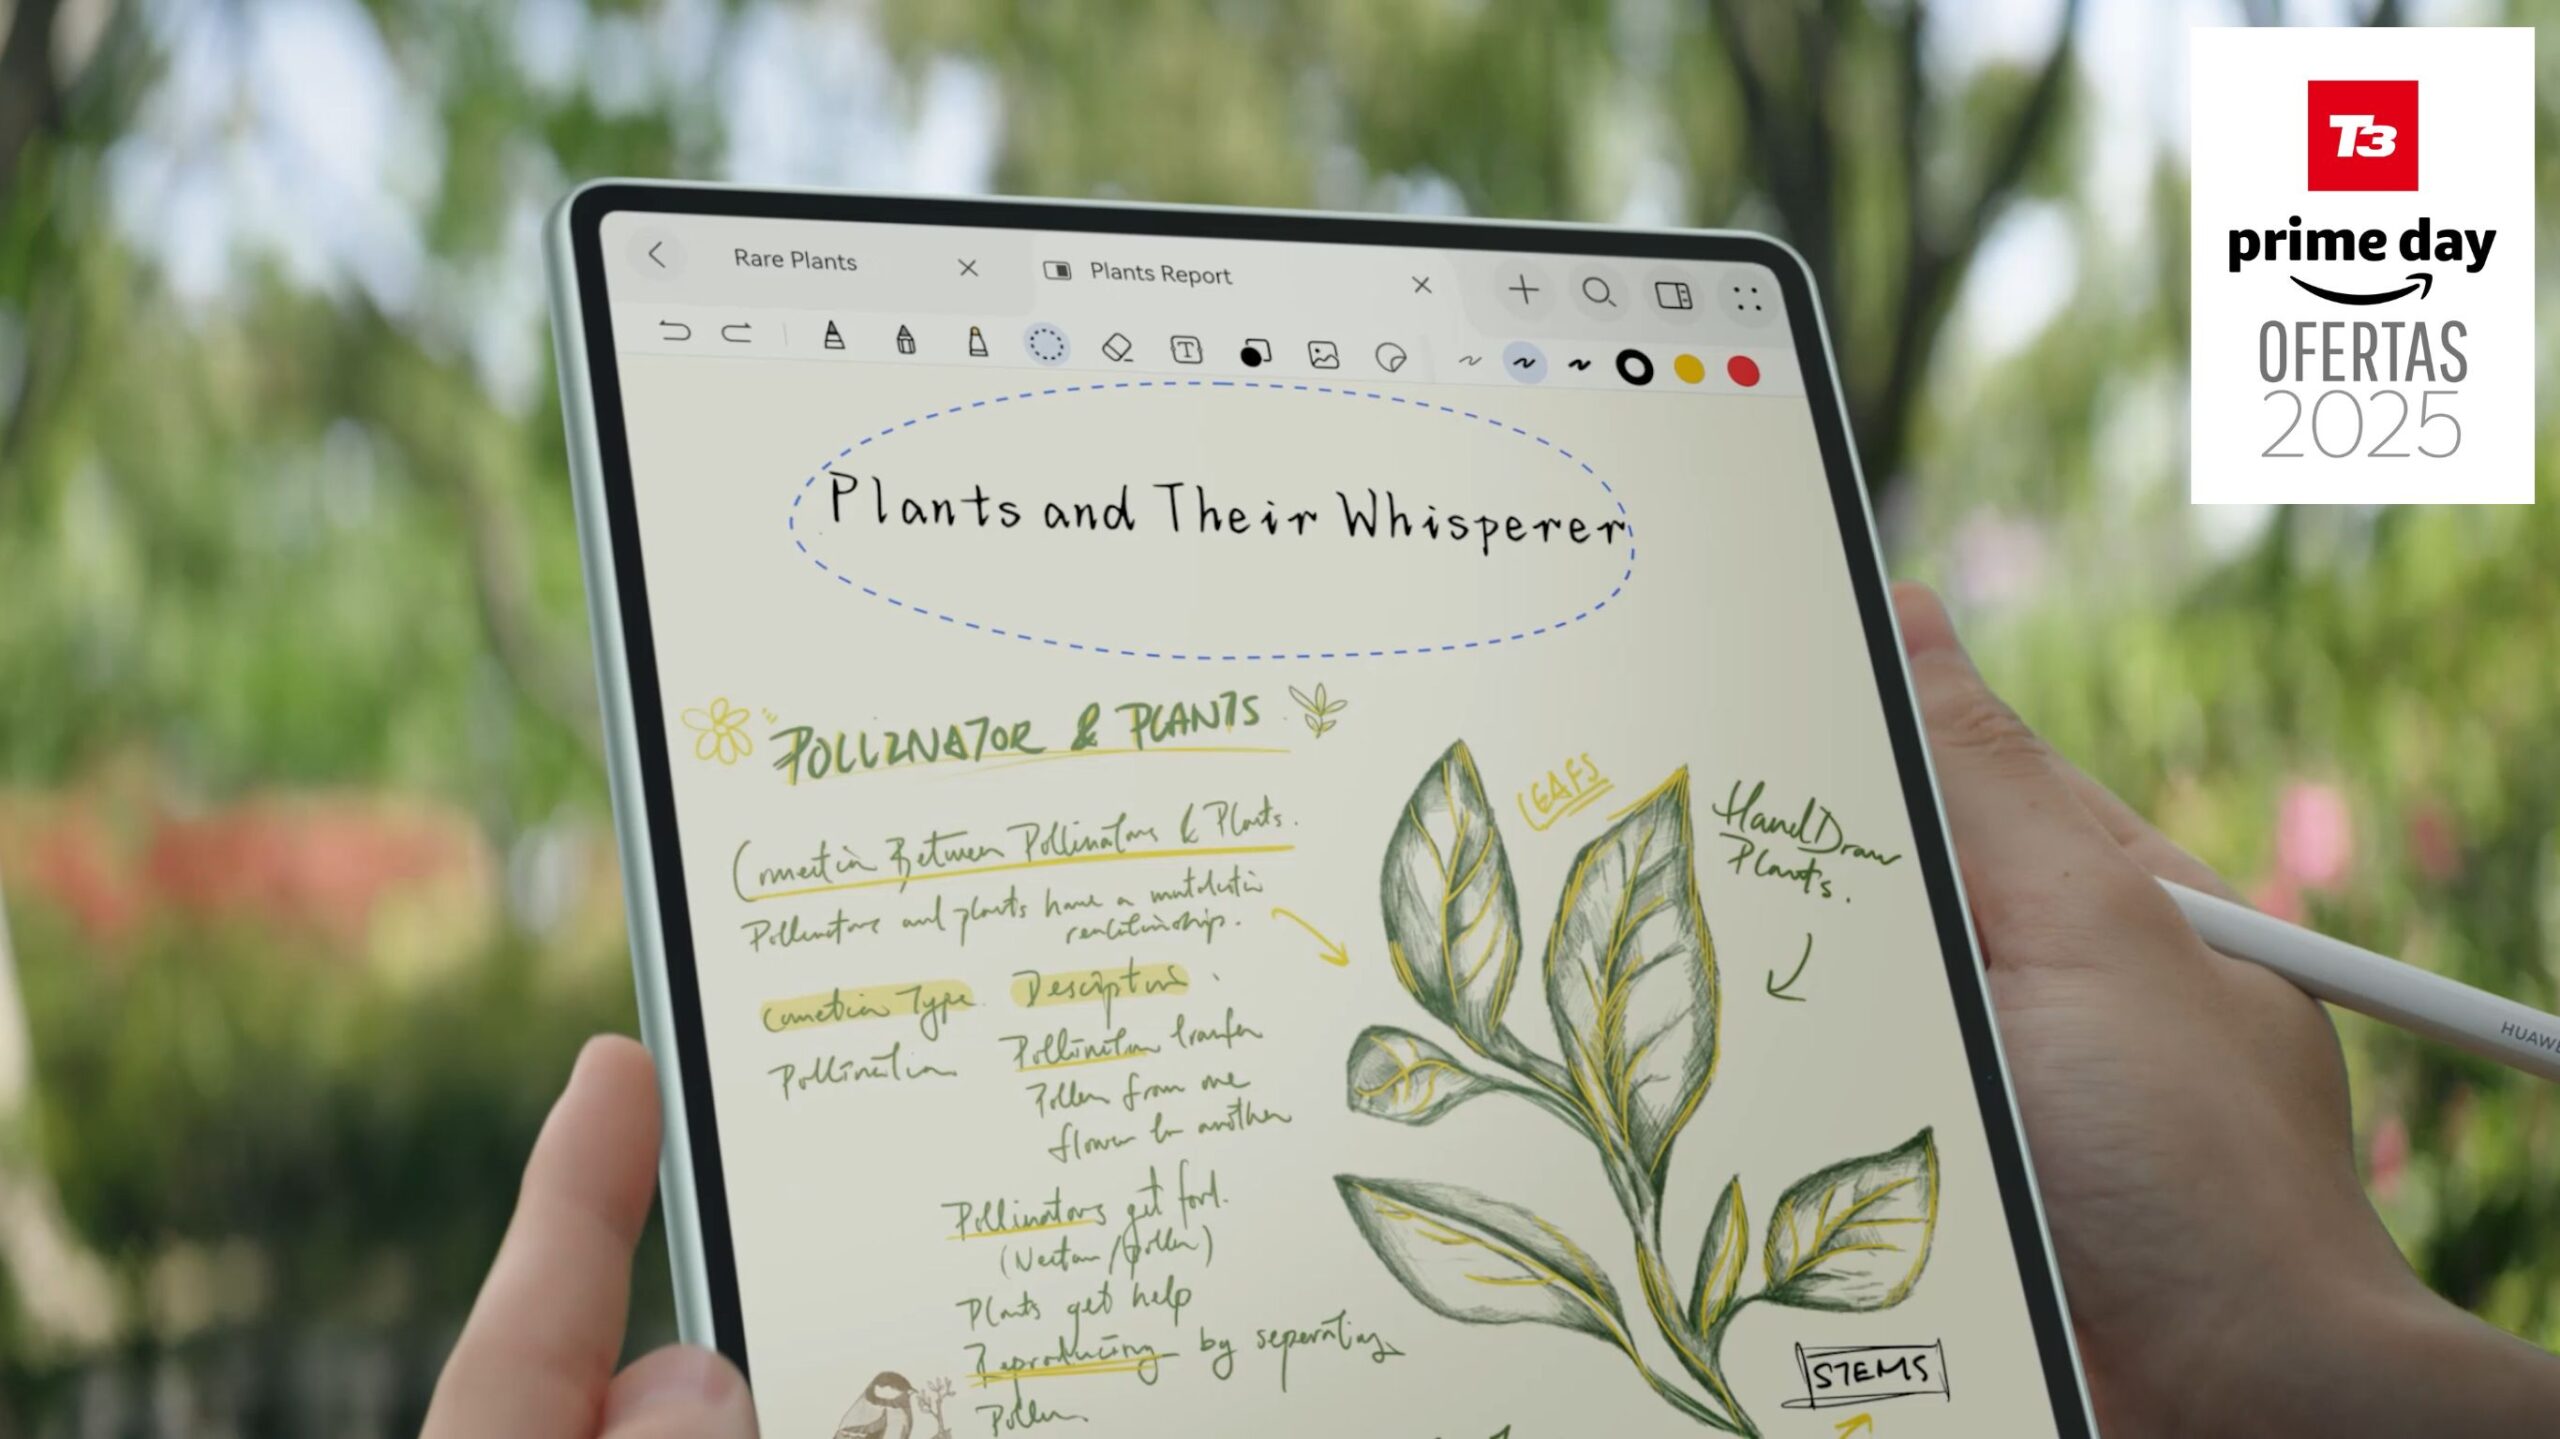 T3
prime day
OFERTAS
2025
Rare Plants
Plants Report
T
Plants and Their Whisperer
POLLINATOR & PLANTS
Connection Between Pollinators & Plants.
Pollinators and plants have a
relationship.
LEAFS
Hand Draw
Plants.
Connection Type Description
Pollination Pollination transfer
Pollen from one
flower to another
Pollinators get food.
(Nectar/pollen)
Plants get help
Reproducing by seperating
Pollen
STEMS